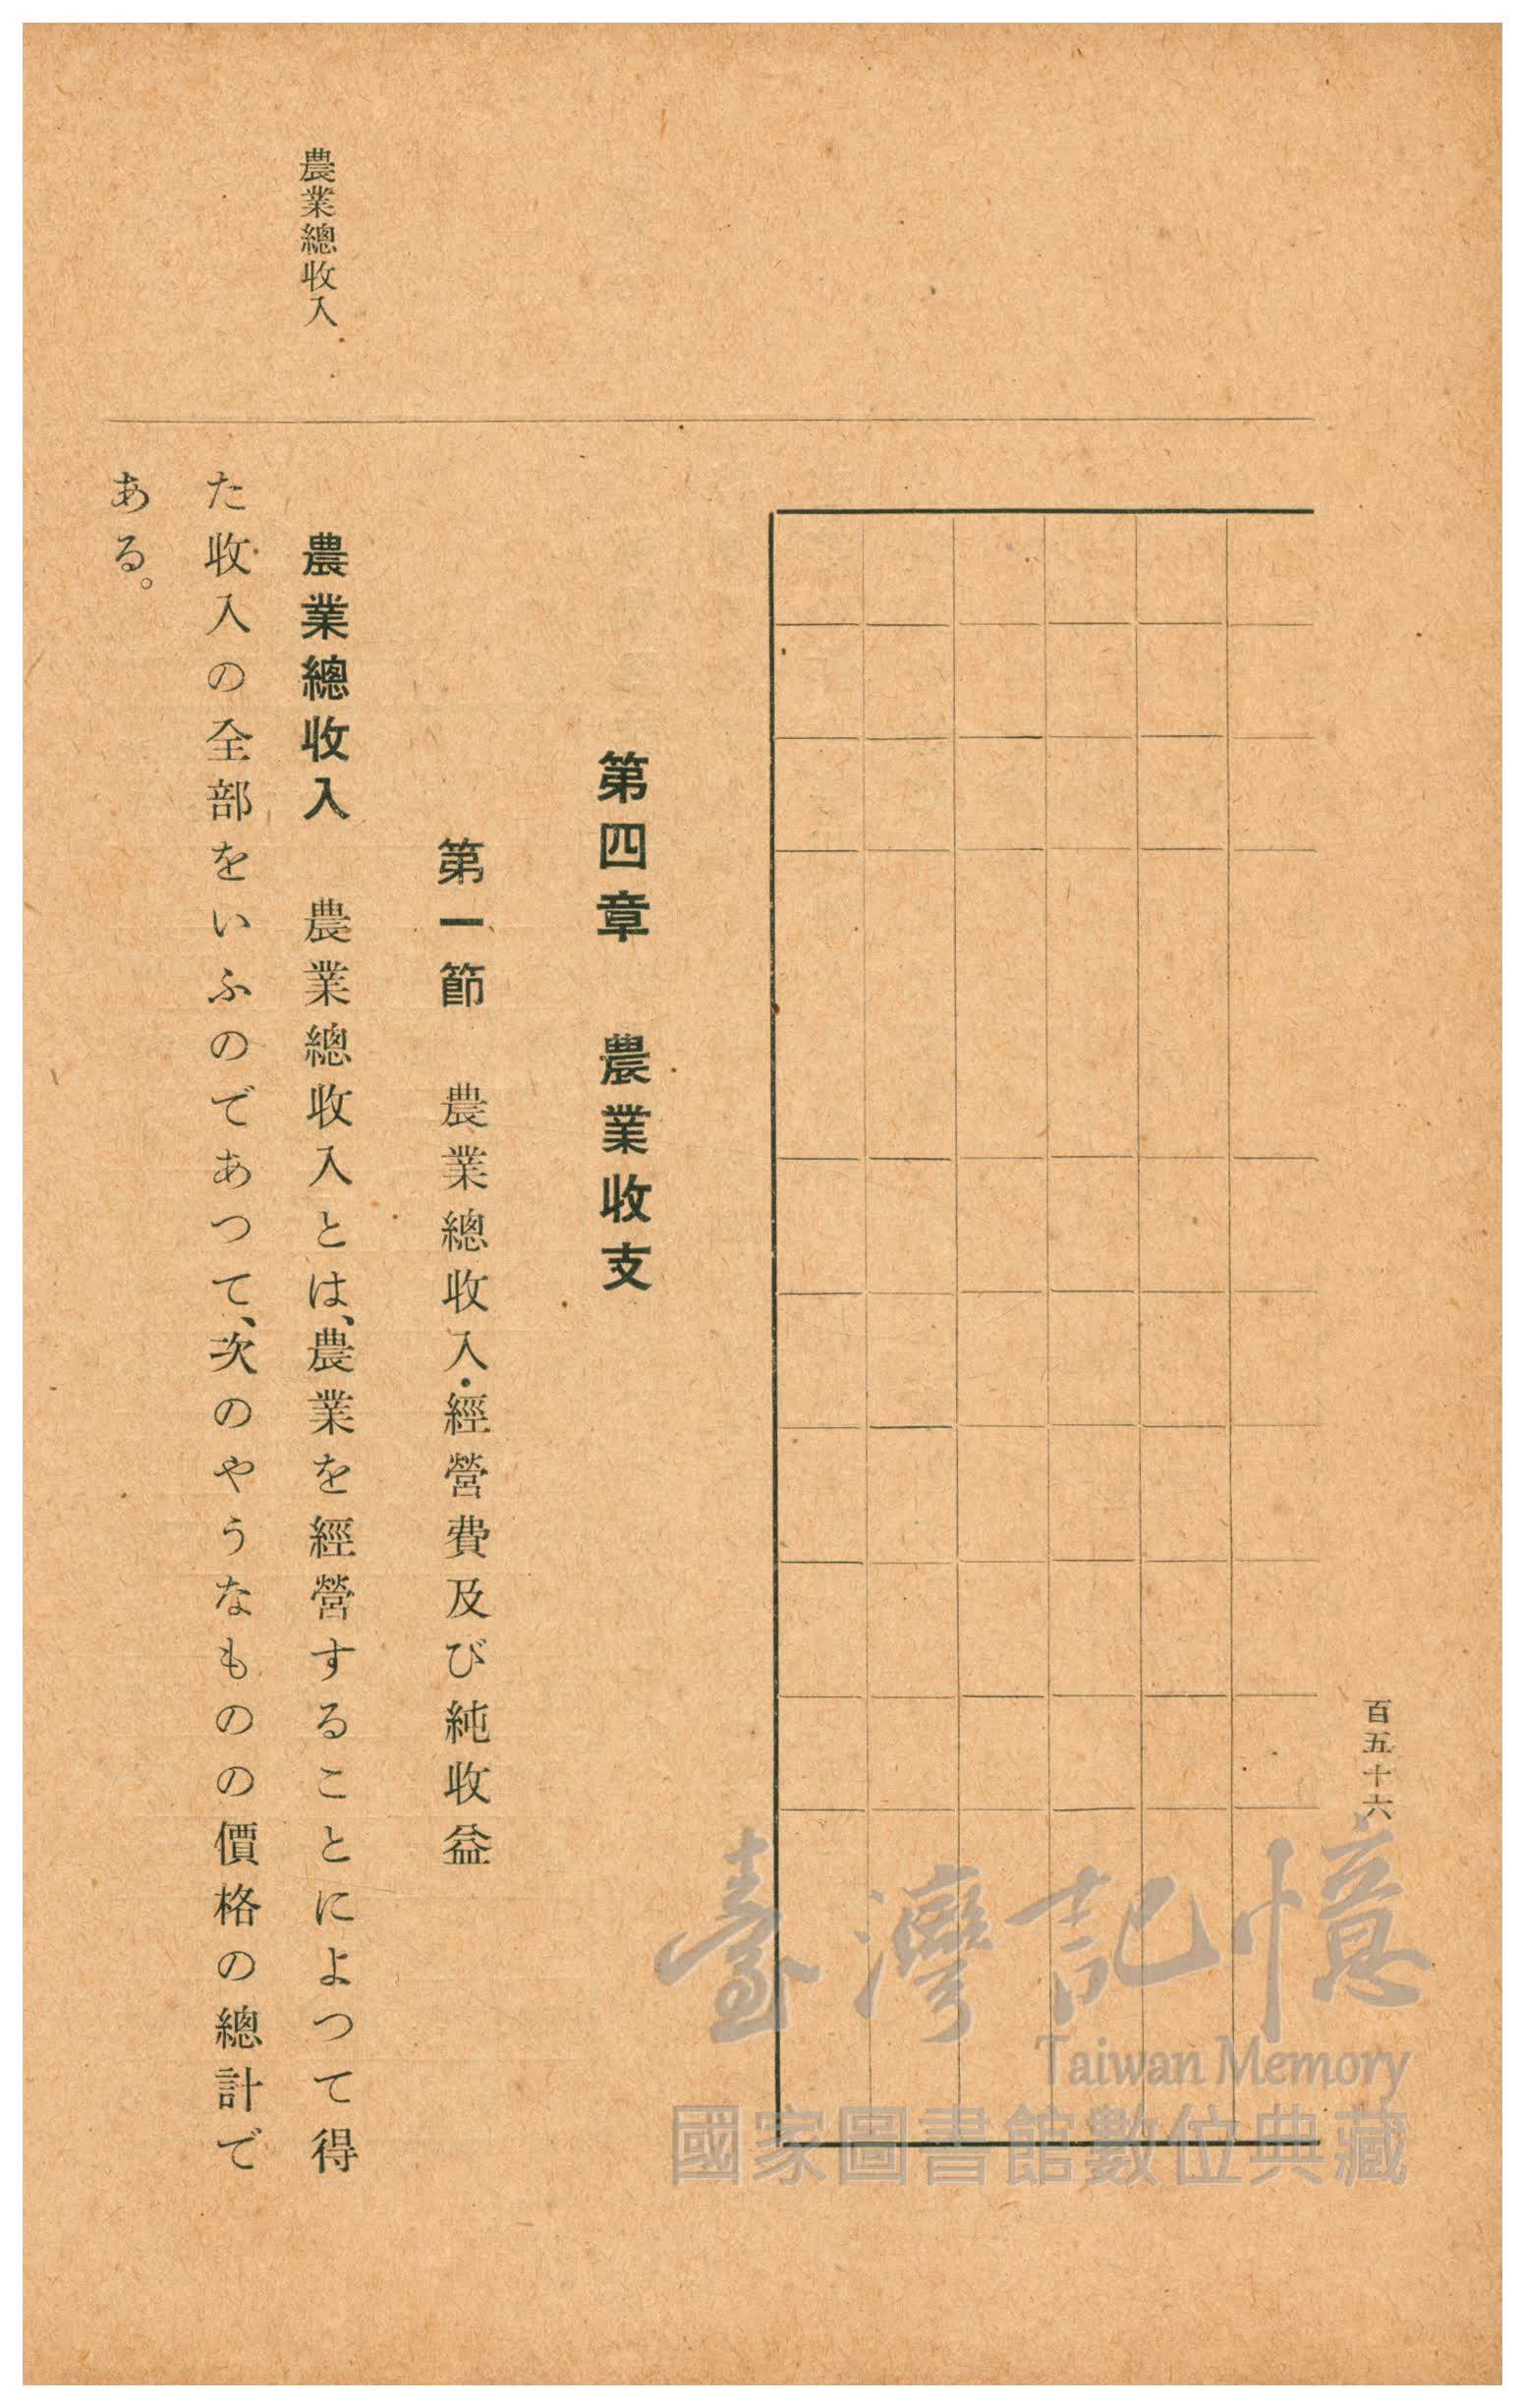 百五十六
第四章　農業收支
第一節　農業總收入・經營費及び純收益
農業總收入
農業總收入　農業總收入とは、農業を經營することによつて得
た收入の全部をいふのであつて、次のやうなものの價格の總計で
ある。
臺灣記憶
Taiwan Memory
國家圖書館數位典藏